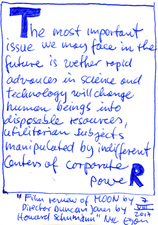 The most important
issue we may face in the
future is wether rapid
advances in science and
technology will change
human beings into
disposable resources,
utilitarian subjects
manipulated by indifferent
centers of corporate
poweR
"Film review of MOON by
Director Duncan Jones by
Howard Schumann"
7
VIII
2017